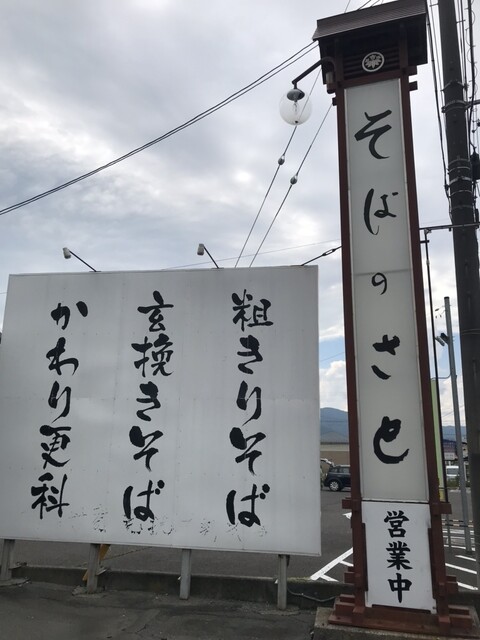 そばのさと
営業中
粗きりそば
玄挽きそば
かわり更科